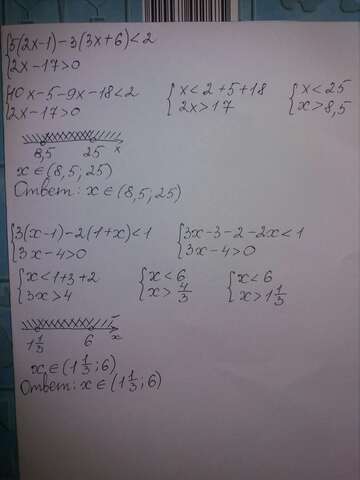 {5(2x-1)-3(3x+6)<2
{2x-17>0
{10x-5-9x-18<2 {x<2+5+18 {x<25
{2x-17>0 {2x>17 {x>8,5
8,5 25 x
x∈(8,5; 25)
Ответ: x∈(8,5; 25)
{3(x-1)-2(1+x)<1 {3x-3-2-2x<1
{3x-4>0 {3x-4>0
{x<1+3+2 {x<6 {x<6
{3x>4 {x>4/3 {x>1 1/3
1 1/3 6 x
x∈(1 1/3; 6)
Ответ: x∈(1 1/3; 6)